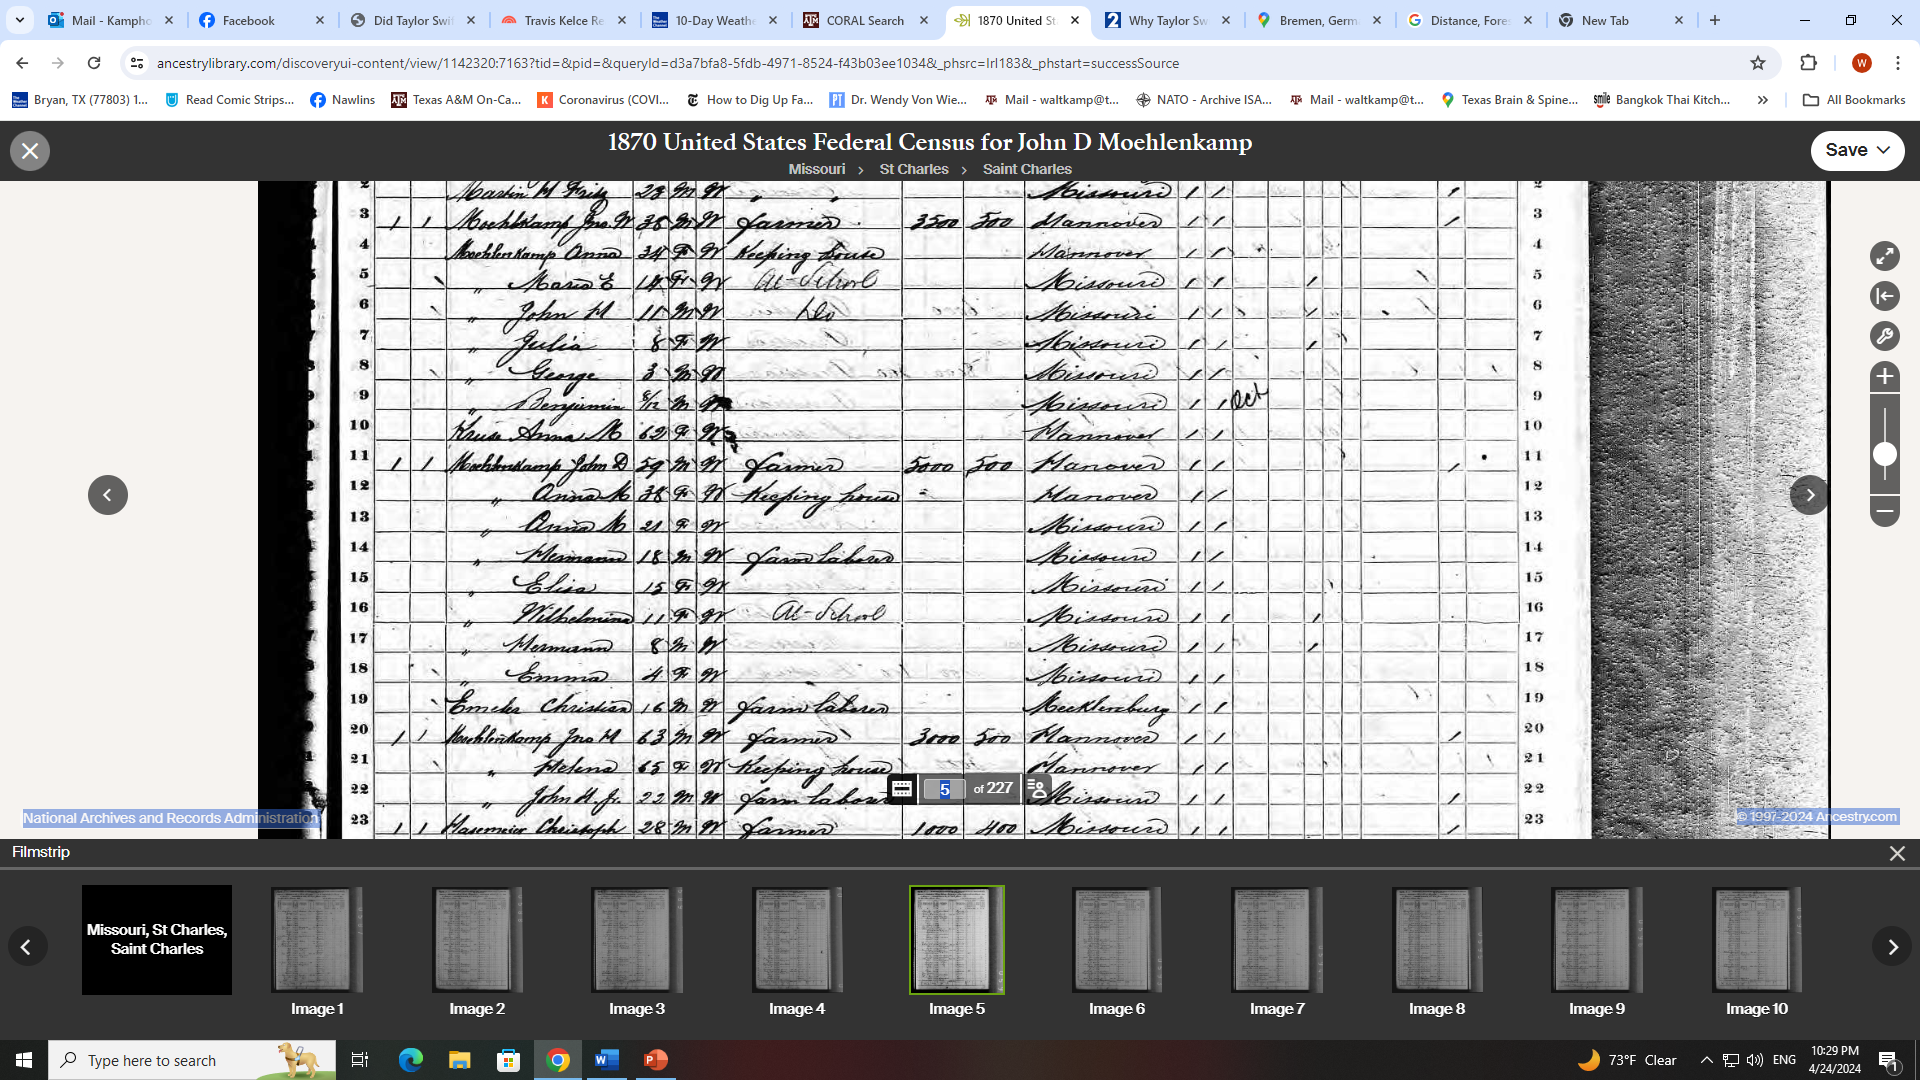 Mail - Kampho
Facebook
Did Taylor Swi
Travis Kelce Re
10-Day Weath
CORAL Search
1870 United S
Why Taylor Sw
Bremen, Germ
Distance, Fore
New Tab
ancestrylibrary.com/discoveryui-content/view/1142320:7163?tid=&pid=&queryId=d3a7bfa8-5fdb-4971-8524-f43b03ee1034&_phsrc=lrl183&_phstart=successSource
Bryan, TX (77803) 1... Read Comic Strips... Nawlins Texas A&M On-Ca... Coronavirus (COVI... How to Dig Up Fa... Dr. Wendy Von Wie... Mail - waltkamp@t... NATO - Archive ISA... Mail - waltkamp@t... Texas Brain & Spine... Bangkok Thai Kitch... » All Bookmarks
1870 United States Federal Census for John D Moehlenkamp
Save
Missouri > St Charles > Saint Charles
2 Martin H Fritz 23 M W " " Missouri 1 1 2
3 1 1 Moehlkamp Jno. W 38 M W farmer 3500 500 Hannover 1 1 3
4 Moehlenkamp Anna 34 F W Keeping house Hannover 1 1 4
5 " Maria E 14 F W At-School Missouri 1 1 5
6 " John H 11 M W Do Missouri 1 1 6
7 " Julia 8 F W Missouri 1 1 7
8 " George 3 M W Missouri 1 1 8
9 " Benjamin 8/12 M W Missouri 1 1 Oct 9
10 Kruse Anna M 62 F W Hannover 1 1 10
11 1 1 Moehlenkamp John D 59 M W farmer 5000 500 Hanover 1 1 11
12 " Anna M 38 F W Keeping house Hanover 1 1 12
13 " Anna M 21 F W Missouri 1 1 13
14 " Hermann 18 M W farm laborer Missouri 1 1 14
15 " Elisa 15 F W Missouri 1 1 15
16 " Wilhelmina 11 F W At-School Missouri 1 1 16
17 " Hermann 8 M W Missouri 1 1 17
18 " Emma 4 F W Missouri 1 1 18
19 Christian 16 M W farm laborer Mecklenburg 1 1 19
20 1 1 Moehlenkamp Jno H 63 M W farmer 3000 500 Hannover 1 1 20
21 " Helena 65 F W Keeping house Hannover 1 1 21
22 " John H. Jr. 22 M W farm labore Missouri 1 1 22
23 1 1 Hasemeier Christoph 28 M W farmer 1000 400 Missouri 1 1 23
5 of 227
National Archives and Records Administration
© 1997-2024 Ancestry.com
Filmstrip
Missouri, St Charles,
Saint Charles
Image 1
Image 2
Image 3
Image 4
Image 5
Image 6
Image 7
Image 8
Image 9
Image 10
Type here to search
73°F Clear
ENG
10:29 PM
4/24/2024
1